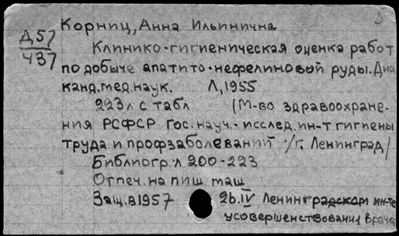 Д57
437
Корниц, Анна Ильинична
Клинико-гигиеническая оценка работ
по добыче апатито-нефелиновой руды. Дис
канд. мед. наук. Л, 1955
223 л с табл (М-во здравоохране-
ния РСФСР Гос. науч.-исслед. ин-т гигиены
труда и профзаболеваний /г. Ленинград/
Библиогр. л 200-223
Отпеч. на пиш маш
Защ. в 1957 26.IV Ленинградском ин-те
усовершенствования враче